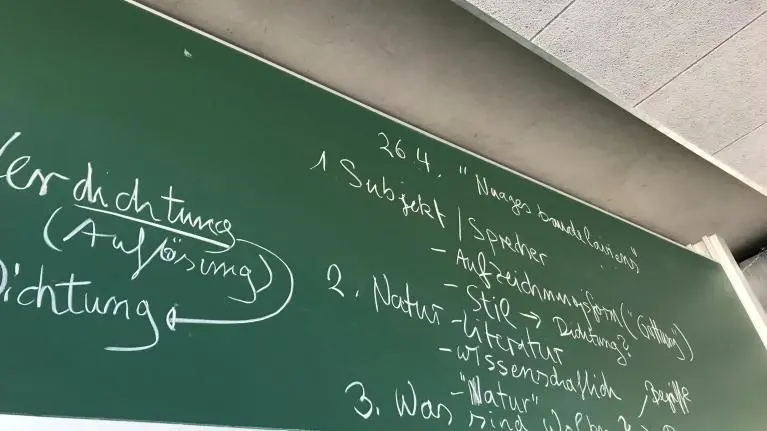 Verdichtung
(Auflösung)
Dichtung
26.4. "Nuages baudelairiens"
1 Subjekt / Sprecher
- Aufzeichnungsform ("Gattung")
- Stil → Dichtung?
2. Natur - Literatur
- wissenschaftlich, Begriffe
- "Natur"
3. Was sind Wolken?